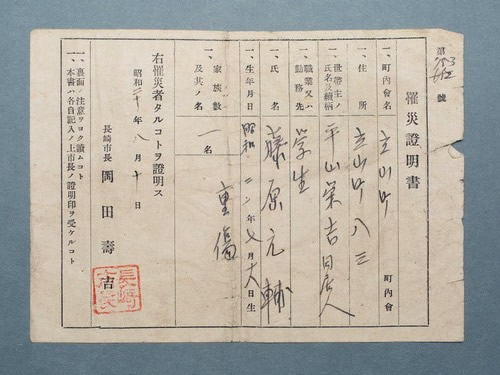 第 號
罹災證明書
一、町內會名 立山町 町內會
一、住所 立山町八三
一、世帶主ノ氏名及續柄 平山榮吉 同居人
一、職業又ハ勤務先 學生
一、氏名 藤原元輔
一、生年月日 昭和 年七月 日生
一、家族數及其ノ名 一名
重傷
右罹災者タルコトヲ證明ス
昭和二十年八月十日
長崎市長 岡田壽吉
一、裏面ノ注意ヲヨク讀ムコト
一、本書ハ各自記入ノ上市長ノ證明印ヲ受ケルコト